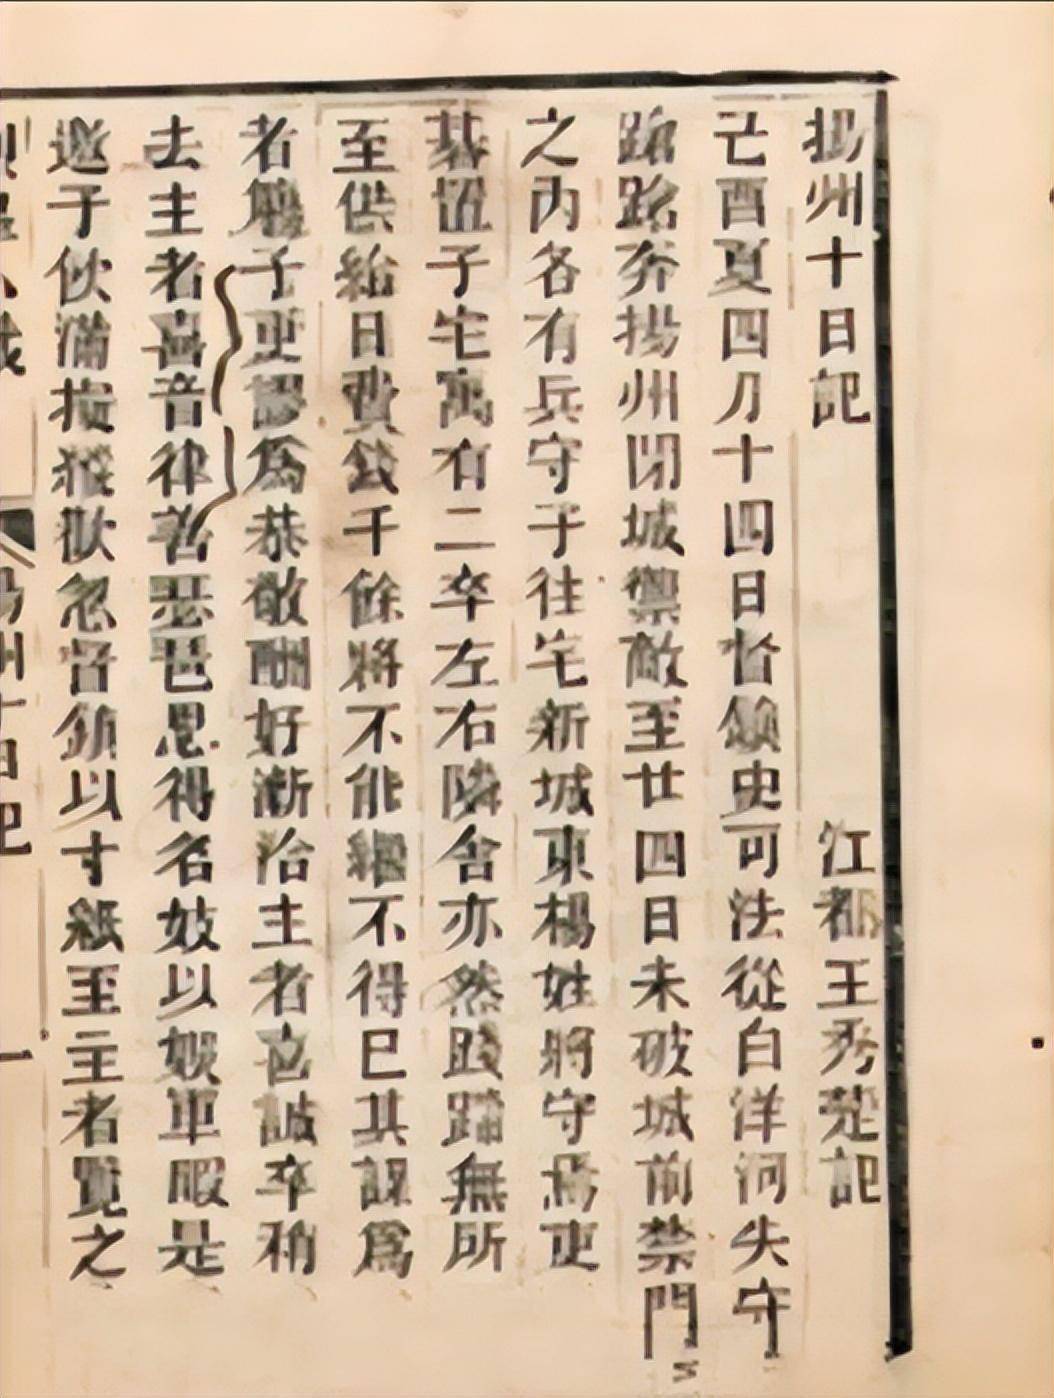 揚州十日記 江都王秀楚記
酉夏四月十四日督鎮史可法從白洋河失守
踉蹌奔揚州閉城禦敵至廿四日未破城前禁門
之內各有兵守予往宅新城東楊姓將守焉吏
碁置予宅寓有二卒左右隣舍亦然踐蹋無所
至供給日費錢千餘將不能繼不得已共謀爲
者觴予更謬爲恭敬酬好漸洽主者色誡卒稍
去主者喜音律善琵琶思得名妓以娛軍暇是
邀予飲滿擬縱歡忽督鎮以寸紙至主者覽之
揚州十日記 一